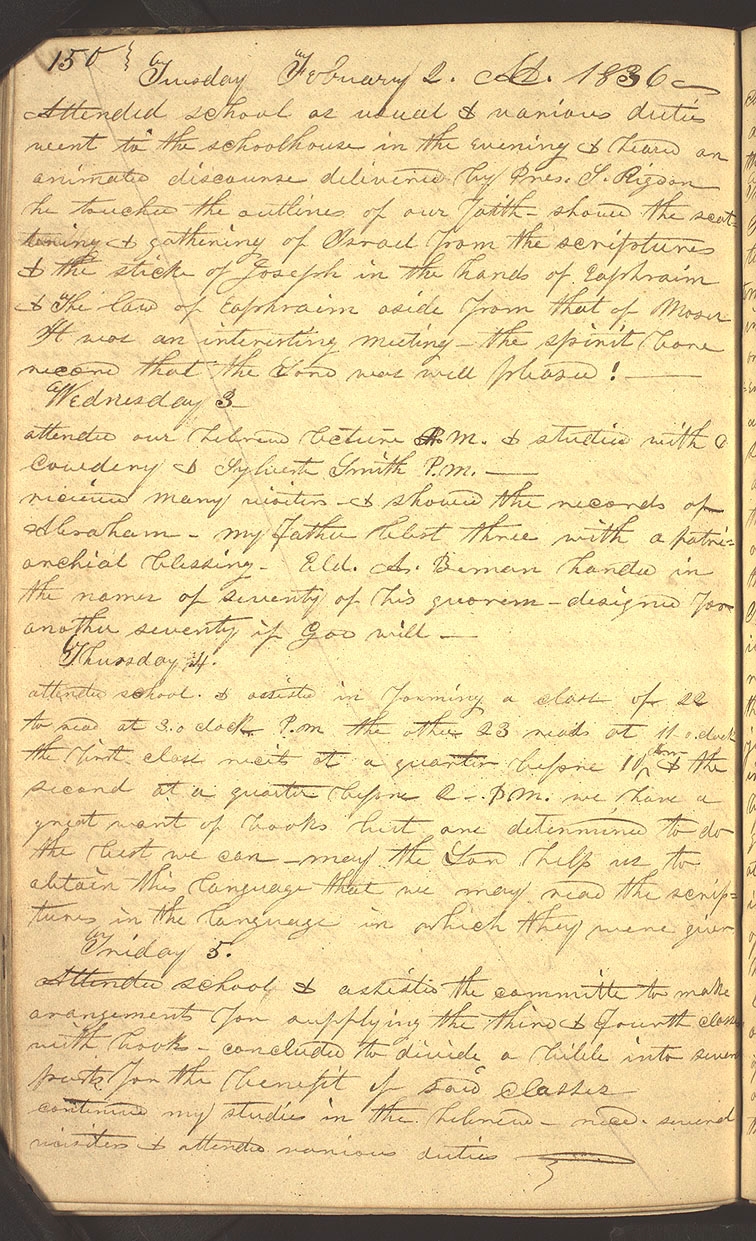 150 } Tuesday February 2. AD. 1836
Attended school as usual & various duties
went to the schoolhouse in the evening & heard an
animated discourse delivered by Pres. S. Rigdon
he touched the outlines of our faith— showed the scat-
tering & gathering of Israel from the scriptures
& the stick of Joseph in the hands of Eaphraim
& The law of Eaphraim aside from that of Moses
It was an interesting meeting— the spirit bore
record that the Lord was well pleased!—
Wednesday 3
attended our hebrew lecture A.M. & studied with O
Cowdery & Sylvester Smith P.M.—
recieved many visiters & showed the records of
Abraham— my Father blest three with a patri=
archial blessing— Eld. A. Beman handed in
the names of seventy of his quorem— designed for
another seventy if God will—
Thursday 4.
attended school. & assisted in forming a class of 22
to read at 3. o clock P.m the other 23 reads at 11 o.clock
the first class recits at a quarter before 10 am & the
second at a quarter before 2— P.M. we have a
great want of books but are determined to do
the best we can— may the Lord help us to
obtain this language that we may read the scrip=
tures in the language in which they were given
Friday 5.
Attended school & assisted the committe to make
arangements for supplying the third & fourth classes
with books— concluded to divide a bible into seven
parts for the benefit of said classes
continued my studies in the hebrew— recd. several
visiters & attended various duties